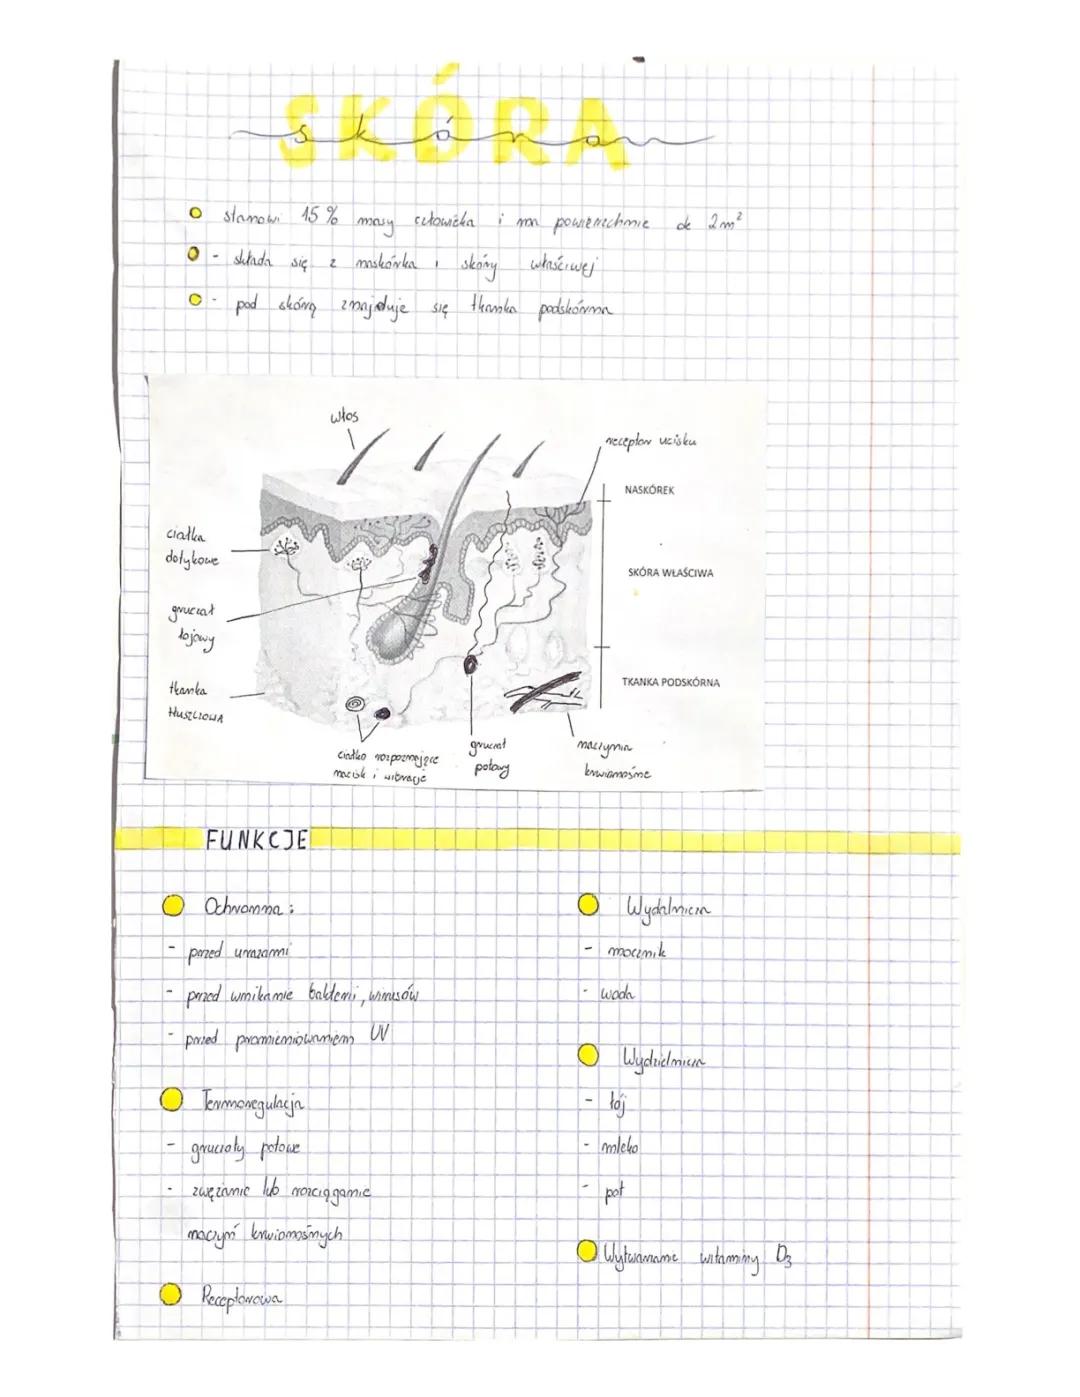 SKÓRA
skóra
stanowi 15% masy człowieka i ma powierzchnie do 2m²
- składa się z naskórka i skóry właściwej
- pod skórą znajduje się tkanka podskórna
włos
receptor ucisku
NASKÓREK
ciałka
dotykowe
SKÓRA WŁAŚCIWA
gruczoł
łojowy
tkanka
tłuszczowa
TKANKA PODSKÓRNA
ciałko rozpoznające
nacisk i wibracje
gruczoł
potowy
naczynia
krwionośne
FUNKCJE
Ochronna:
- przed urazami
- przed wnikanie bakterii, wirusów
- przed promieniowaniem UV
Termoregulacja
- gruczoły potowe
- zwężanie lub rozciąganie
naczyń krwionośnych
Receptorowa
Wydalnicza
- mocznik
- woda
Wydzielnicza
- łój
- mleko
- pot
Wytwarzanie witaminy D₃